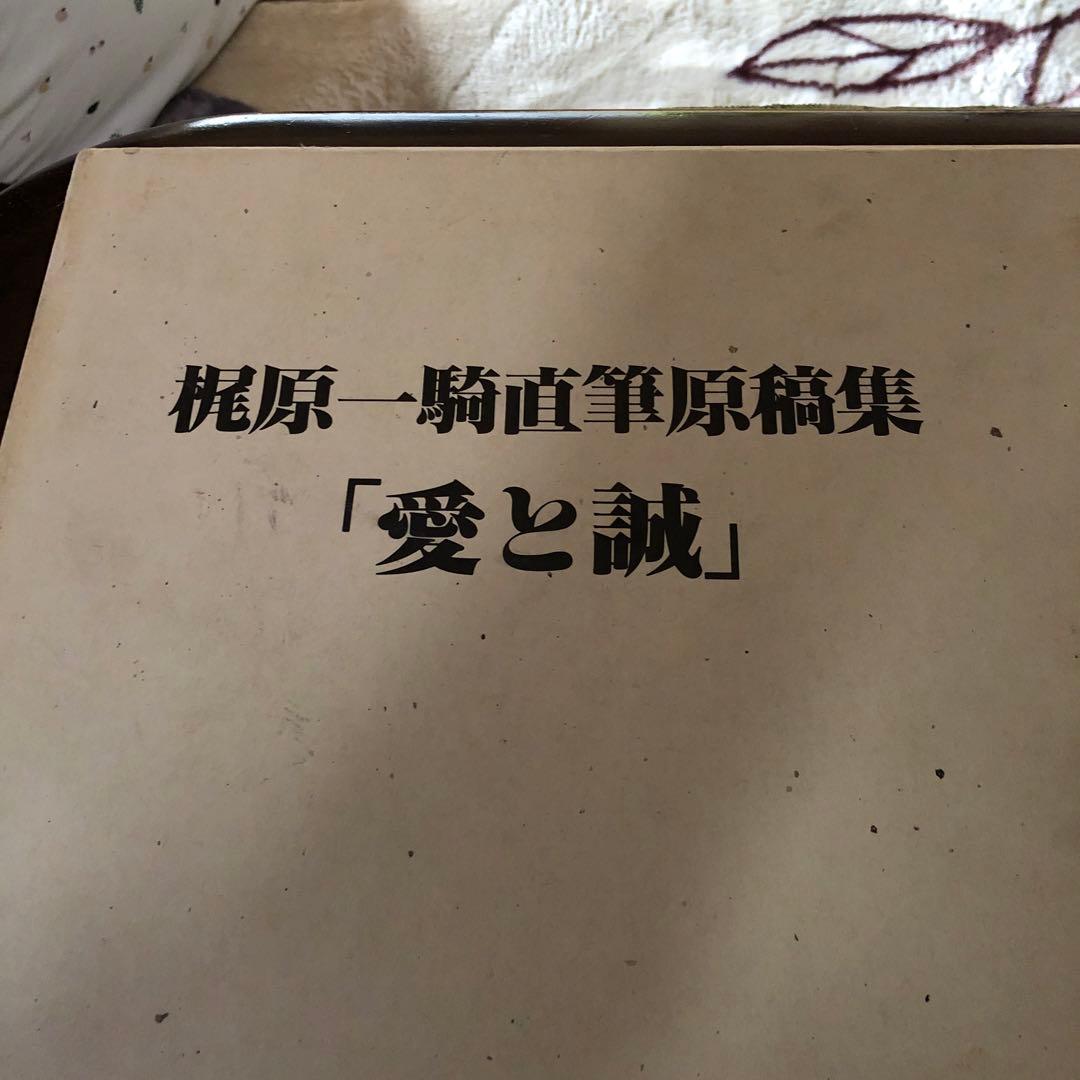 梶原一騎直筆原稿集
「愛と誠」